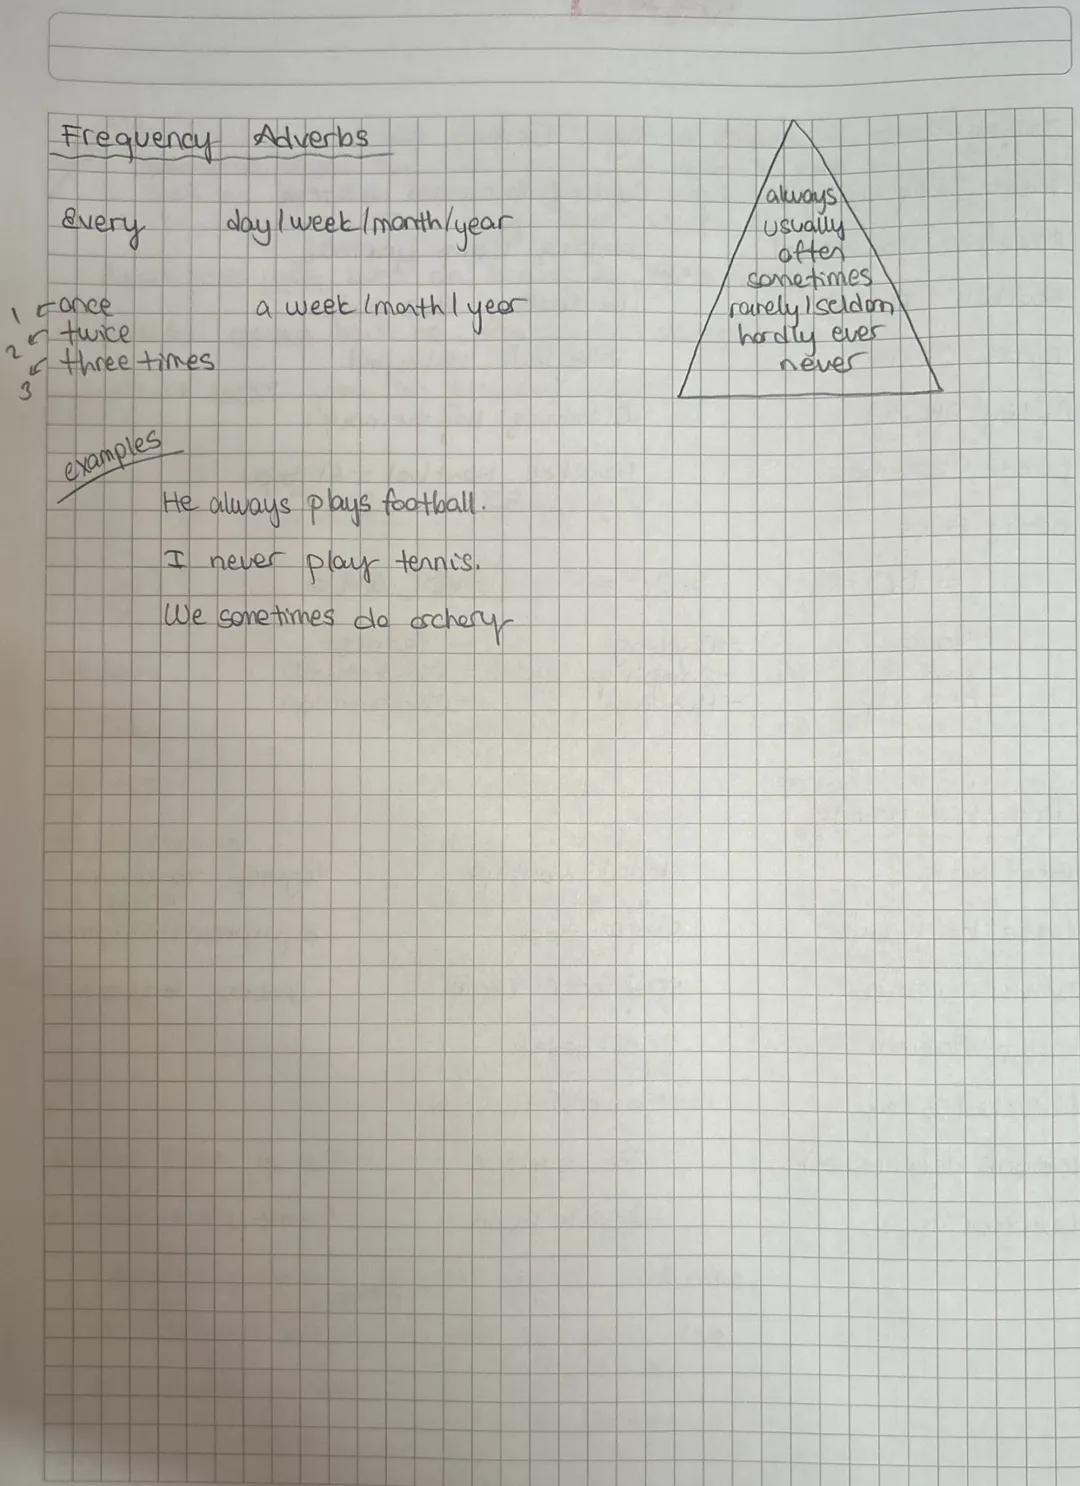 Frequency Adverbs
every day/week/month/year
1 once a week/month/year
2 twice
3 three times
always
usually
often
sometimes
rarely/seldom
hardly ever
never
examples
He always plays football.
I never play tennis.
We sometimes do archery